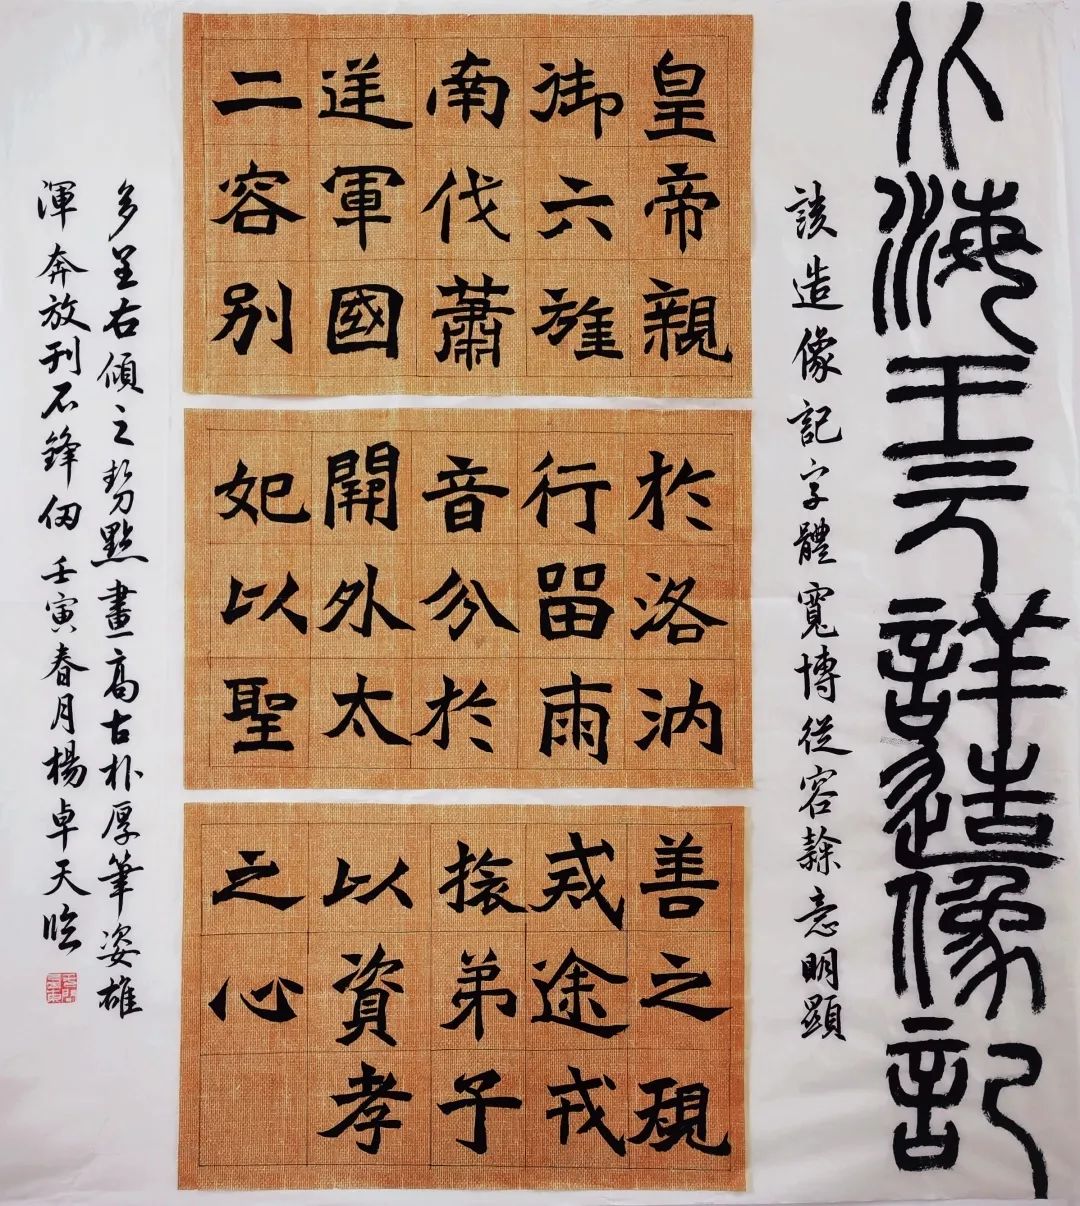 北海王元詳造像記
該造像記字體寬博從容隸意明顯
皇帝親
御六旌
南伐蕭
逆軍國
二容別
於洛汭
行留雨
音分於
開外太
妃以聖
善之規
戒途戎
旅弟子
以資孝
之心
多呈右傾之勢點畫高古朴厚筆姿雄
渾奔放刊石鋒仞壬寅春月楊卓天臨